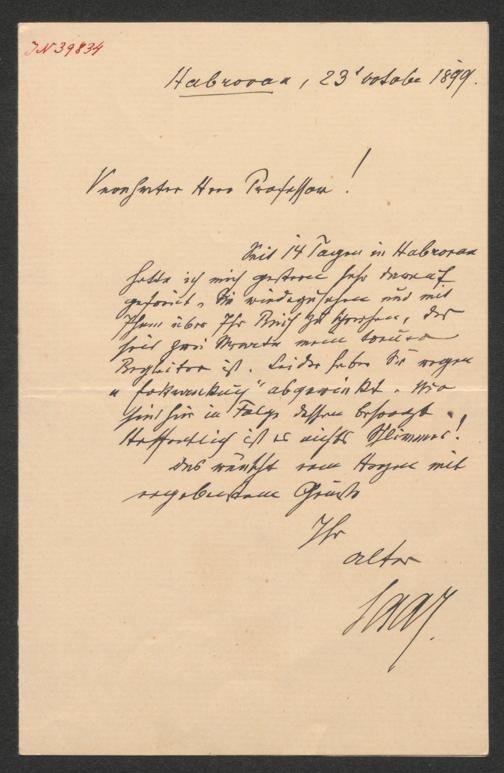 IN 39834
Habrovan, 23t October 1899.
Verehrter Herr Professor!
Seit 14 Tagen in Habrovan
hatte ich mich gestern sehr darauf
gefreut, Sie wiederzusehen und mit
Ihnen über Ihr Buch zu sprechen, das
seit zwei Monaten mein treuer
Begleiter ist. Leider haben Sie wegen
"Erkrankung" abgewinkt. Wir
sind hier in Folge dessen besorgt.
Hoffentlich ist es nichts Schlimmes!
Das wünscht vom Herzen mit
ergebenstem Gruße
Ihr
alter
Saar.